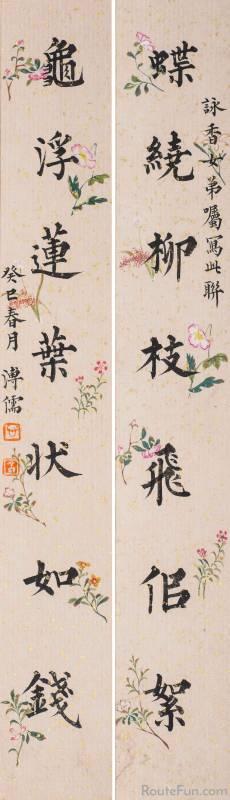 詠香女弟囑寫此聯
蝶繞柳枝飛侶絮
龜浮蓮葉狀如錢
癸巳春月 溥儒
RouteFun.com